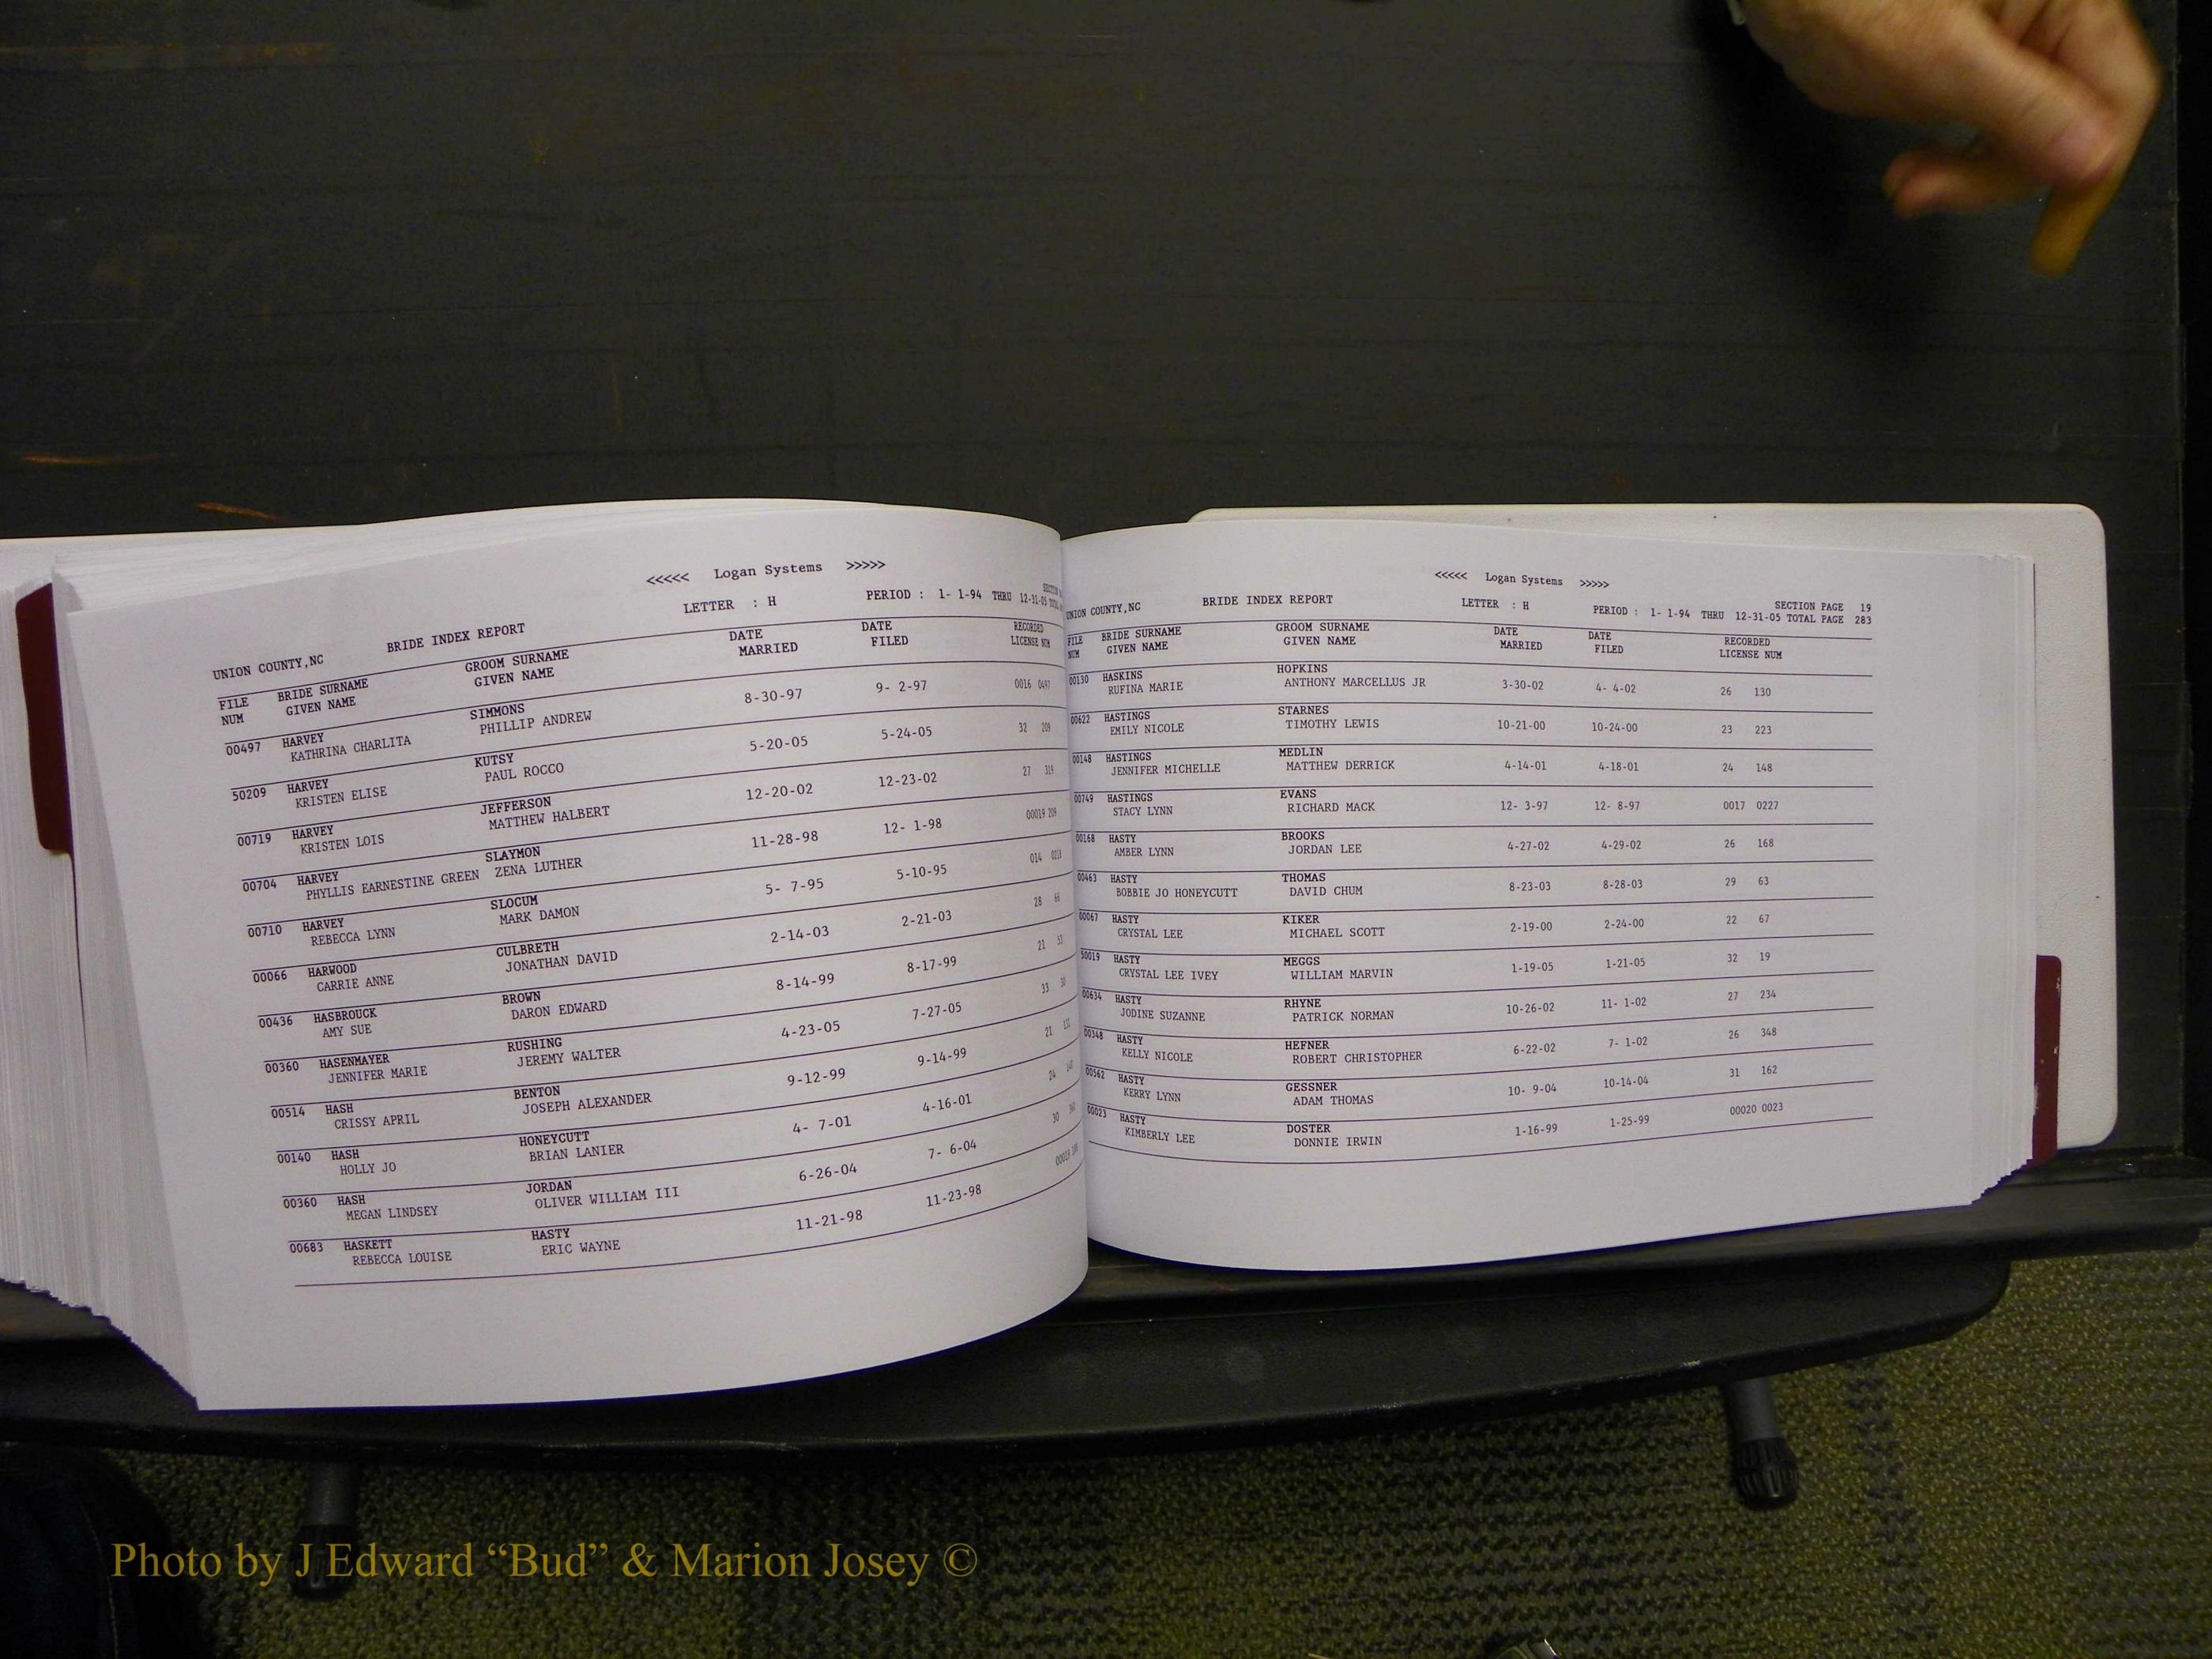 <<<<< Logan Systems >>>>>
UNION COUNTY,NC BRIDE INDEX REPORT LETTER : H PERIOD : 1- 1-94 THRU 12-31-05
FILE BRIDE SURNAME GROOM SURNAME DATE DATE RECORDED
NUM GIVEN NAME GIVEN NAME MARRIED FILED LICENSE NUM
00497 HARVEY SIMMONS 8-30-97 9- 2-97 0016 0497
KATHRINA CHARLITA PHILLIP ANDREW
50209 HARVEY KUTSY 5-20-05 5-24-05 32 209
KRISTEN ELISE PAUL ROCCO
00719 HARVEY JEFFERSON 12-20-02 12-23-02 27 319
KRISTEN LOIS MATTHEW HALBERT
00704 HARVEY SLAYMON 11-28-98 12- 1-98 00019 209
PHYLLIS EARNESTINE GREEN ZENA LUTHER
00710 HARVEY SLOCUM 5- 7-95 5-10-95 014
REBECCA LYNN MARK DAMON
00066 HARWOOD CULBRETH 2-14-03 2-21-03 28 66
CARRIE ANNE JONATHAN DAVID
00436 HASBROUCK BROWN 8-14-99 8-17-99 21
AMY SUE DARON EDWARD
00360 HASENMAYER RUSHING 4-23-05 7-27-05 33
JENNIFER MARIE JEREMY WALTER
00514 HASH BENTON 9-12-99 9-14-99 21
CRISSY APRIL JOSEPH ALEXANDER
00140 HASH HONEYCUTT 4- 7-01 4-16-01 24
HOLLY JO BRIAN LANIER
00360 HASH JORDAN 6-26-04 7- 6-04 30
MEGAN LINDSEY OLIVER WILLIAM III
00683 HASKETT HASTY 11-21-98 11-23-98
REBECCA LOUISE ERIC WAYNE
<<<<< Logan Systems >>>>>
SECTION PAGE 19
UNION COUNTY,NC BRIDE INDEX REPORT LETTER : H PERIOD : 1- 1-94 THRU 12-31-05 TOTAL PAGE 283
FILE BRIDE SURNAME GROOM SURNAME DATE DATE RECORDED
NUM GIVEN NAME GIVEN NAME MARRIED FILED LICENSE NUM
00130 HASKINS HOPKINS 3-30-02 4- 4-02 26 130
RUFINA MARIE ANTHONY MARCELLUS JR
00622 HASTINGS STARNES 10-21-00 10-24-00 23 223
EMILY NICOLE TIMOTHY LEWIS
00148 HASTINGS MEDLIN 4-14-01 4-18-01 24 148
JENNIFER MICHELLE MATTHEW DERRICK
00749 HASTINGS EVANS 12- 3-97 12- 8-97 0017 0227
STACY LYNN RICHARD MACK
00168 HASTY BROOKS 4-27-02 4-29-02 26 168
AMBER LYNN JORDAN LEE
00463 HASTY THOMAS 8-23-03 8-28-03 29 63
BOBBIE JO HONEYCUTT DAVID CHUM
00067 HASTY KIKER 2-19-00 2-24-00 22 67
CRYSTAL LEE MICHAEL SCOTT
50019 HASTY MEGGS 1-19-05 1-21-05 32 19
CRYSTAL LEE IVEY WILLIAM MARVIN
00634 HASTY RHYNE 10-26-02 11- 1-02 27 234
JODINE SUZANNE PATRICK NORMAN
00348 HASTY HEFNER 6-22-02 7- 1-02 26 348
KELLY NICOLE ROBERT CHRISTOPHER
00562 HASTY GESSNER 10- 9-04 10-14-04 31 162
KERRY LYNN ADAM THOMAS
00023 HASTY DOSTER 1-16-99 1-25-99 00020 0023
KIMBERLY LEE DONNIE IRWIN
Photo by J Edward “Bud” & Marion Josey ©